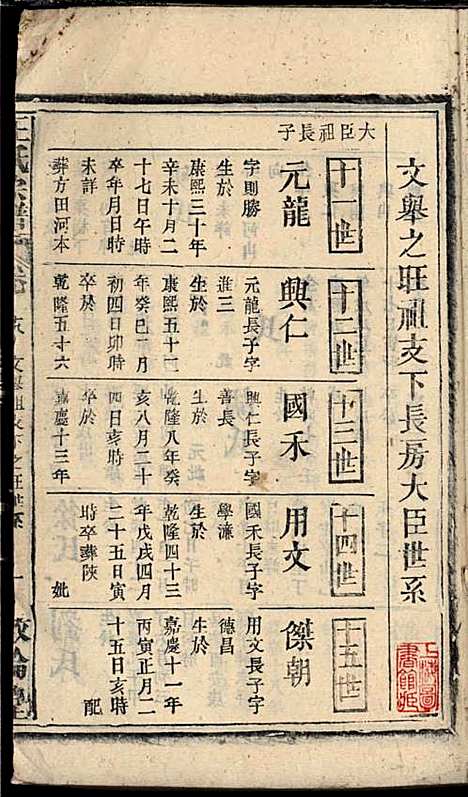 文舉之旺祖支下長房大臣世系
大臣祖長子
十一世
元龍
字則勝
生於
康熙三十年
辛未十月二
十七日午時
卒年月日時
未詳
葬方田河本
十二世
興仁
元龍長子字
淮三
生於
康熙五十二
年癸巳二月
初四日卯時
卒於
乾隆五十六
十三世
國禾
興仁長子字
善長
生於
乾隆八年癸
亥八月二十
四日亥時
卒於
嘉慶十三年
十四世
用文
國禾長子字
學濂
生於
乾隆四十三
年戊戌四月
二十五日寅
時卒葬陝
妣
十五世
傑朝
用文長子字
德昌
生於
嘉慶十一年
丙寅正月二
十五日亥時
配
王氏宗譜
文舉祖支下之旺世系
一
敦倫堂
上海圖書館藏